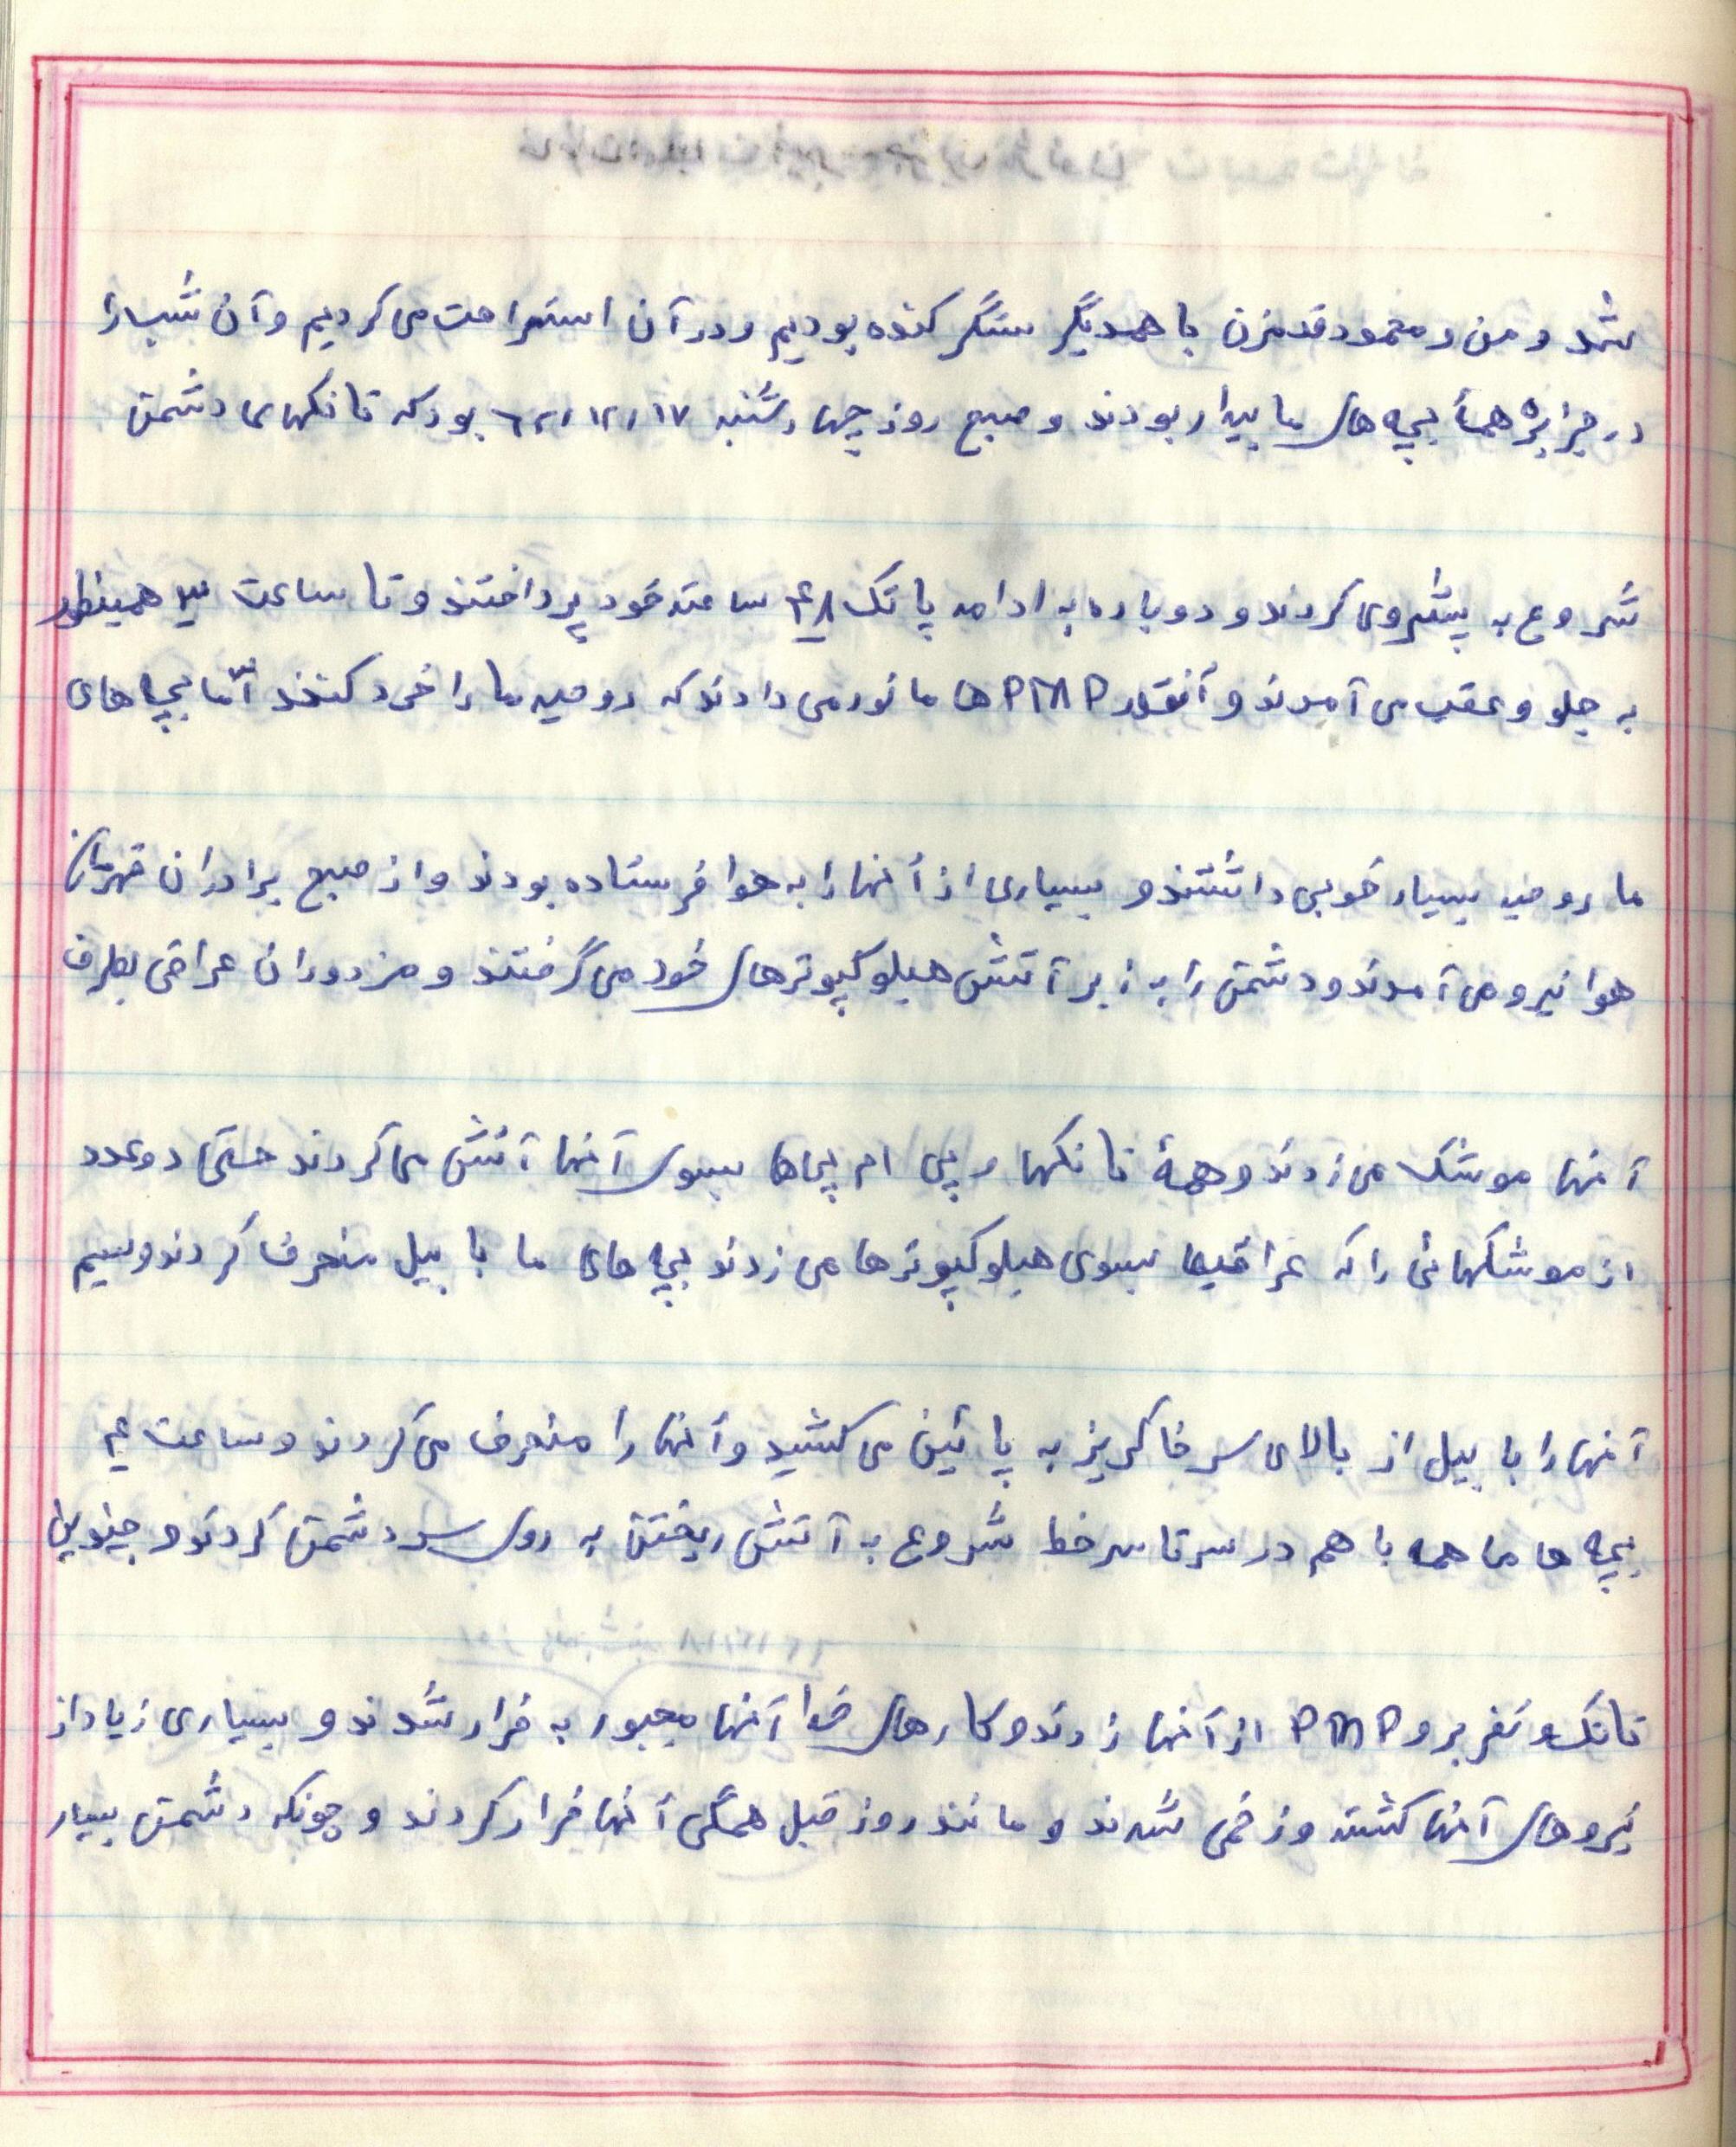 شد و من و محمود قدمزن با همدیگر سنگر کنده بودیم و در آن استراحت می کردیم و آن شب را
در جزایر همهٔ بچه های ما بیدار بودند و صبح روز چهارشنبه ۶۲/۱۲/۱۷ بود که تانکهای دشمن
شروع به پیشروی کردند و دوباره به ادامه پاتک ۴۸ ساعته خود پرداختند و تا ساعت ۳ همینطور
به جلو و عقب می آمدند و آنقدر PMP ها مانور می دادند که روحیه ما را خرد کنند امّا بچه های
ما روحیه بسیار خوبی داشتند و بسیاری از آنها را به هوا فرستاده بودند و از صبح برادران قهرمان
هوا نیرو می آمدند و دشمن را به زیر آتش هیلوکپوترهای خود می گرفتند و مزدوران عراقی بطرف
آنها موشک می زدند و همهٔ تانکها و پی ام پی ها بسوی آنها آتش می کردند حتی دو عدد
از موشکهائی را که عراقیها بسوی هیلوکپوترها می زدند بچه های ما با بیل منحرف کردند و سیم
آنها را با بیل از بالای سر خاکریز به پائین می کشید و آنها را منحرف می کردند و ساعت ۴
بچه ها ما همه با هم در سرتاسر خط شروع به آتش ریختن به روی سر دشمن کردند و چندین
تانک و نفربر و PMP از آنها زدند و کارهای خدا آنها مجبور به فرار شدند و بسیاری زیاد از
نیروهای آنها کشته و زخمی شدند و مانند روز قبل همگی آنها فرار کردند و چونکه دشمن بسیار